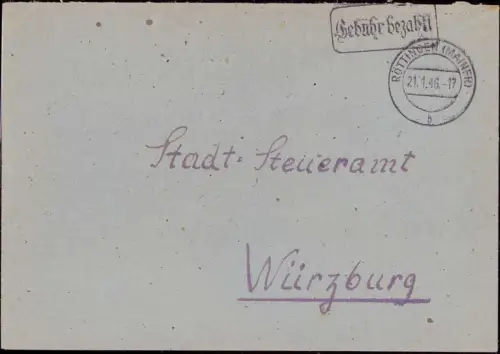 Gebühr bezahlt
RÖTTINGEN (MAINFR)
21.1.46.-17
b
Stadt-Steueramt
Würzburg